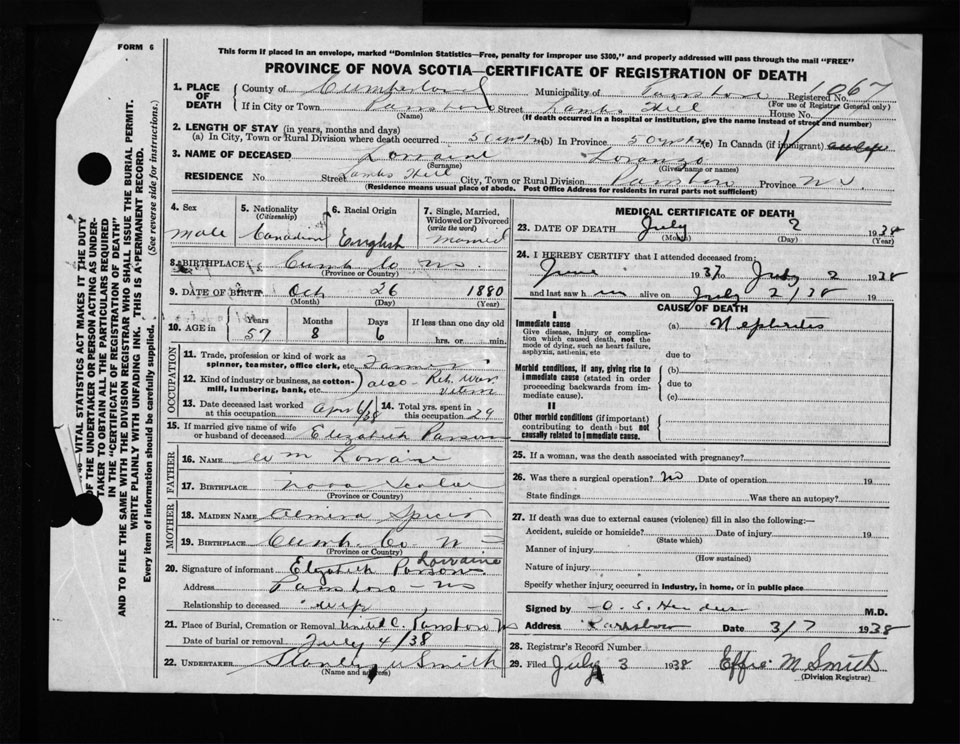 FORM 6
This form if placed in an envelope, marked "Dominion Statistics—Free, penalty for improper use $300," and properly addressed will pass through the mail "FREE"
PROVINCE OF NOVA SCOTIA—CERTIFICATE OF REGISTRATION OF DEATH
1. PLACE OF DEATH
County of Cumberland Municipality of Registered No. 667
(For use of Registrar General only)
If in City or Town Parrsboro Street Lambs Hill House No.
(Name) (If death occurred in a hospital or institution, give the name instead of street and number)
2. LENGTH OF STAY (in years, months and days)
(a) In City, Town or Rural Division where death occurred (b) In Province (c) In Canada (if immigrant)
3. NAME OF DECEASED Lorraine Loranzo
(Surname) (Given name or names)
RESIDENCE No. Street Lambs Hill City, Town or Rural Division Parrsboro Province N.S.
(Residence means usual place of abode. Post Office Address for residents in rural parts not sufficient)
4. Sex Male
5. Nationality (Citizenship) Canadian
6. Racial Origin English
7. Single, Married, Widowed or Divorced (write the word) Married
8. BIRTHPLACE Cumb Co N.S.
(Province or Country)
9. DATE OF BIRTH Oct 26 1880
(Month) (Day) (Year)
10. AGE in Years Months Days If less than one day old
57 8 6 hrs. or min.
OCCUPATION
11. Trade, profession or kind of work as spinner, teamster, office clerk, etc. Farmer
12. Kind of industry or business, as cotton-mill, lumbering, bank, etc. also - Ret. War Vetern
13. Date deceased last worked at this occupation Apr 6/38 14. Total yrs. spent in this occupation 29
15. If married give name of wife or husband of deceased Elizabeth Parsons
FATHER
16. NAME Wm Lorraine
17. BIRTHPLACE Nova Scotia
(Province or Country)
MOTHER
18. MAIDEN NAME Almira Spicer
19. BIRTHPLACE Cumb. Co. N S
(Province or Country)
20. Signature of informant Elizabeth Parsons Lorraine
Address Parrsboro N S
Relationship to deceased wife
21. Place of Burial, Cremation or Removal United C. Parrsboro N S
Date of burial or removal July 4/38
22. UNDERTAKER Stanley W Smith
(Name and address)
MEDICAL CERTIFICATE OF DEATH
23. DATE OF DEATH July 2 1938
(Month) (Day) (Year)
24. I HEREBY CERTIFY that I attended deceased from:
June 1937 to July 2 1938
and last saw him alive on July 2/38 19
CAUSE OF DEATH
I
Immediate cause (a) Nephritis
Give disease, injury or complication which caused death, not the mode of dying, such as heart failure, asphyxia, asthenia, etc
due to
Morbid conditions, if any, giving rise to immediate cause (stated in order proceeding backwards from immediate cause).
(b)
due to
(c)
II
Other morbid conditions (if important) contributing to death but not causally related to immediate cause.
25. If a woman, was the death associated with pregnancy?
26. Was there a surgical operation? No Date of operation 19
State findings Was there an autopsy?
27. If death was due to external causes (violence) fill in also the following:—
Accident, suicide or homicide? Date of injury 19
(State which)
Manner of injury
(How sustained)
Nature of injury
Specify whether injury occurred in industry, in home, or in public place
Signed by M.D.
Address Parrsboro Date 3/7 1938
28. Registrar's Record Number
29. Filed July 3 1938 Effie M Smith
(Division Registrar)
VITAL STATISTICS ACT MAKES IT THE DUTY
OF THE UNDERTAKER OR PERSON ACTING AS UNDER-
TAKER TO OBTAIN ALL THE PARTICULARS REQUIRED
IN THE "CERTIFICATE OF REGISTRATION OF DEATH"
AND TO FILE THE SAME WITH THE DIVISION REGISTRAR WHO SHALL ISSUE THE BURIAL PERMIT.
WRITE PLAINLY WITH UNFADING INK. THIS IS A PERMANENT RECORD.
Every item of information should be carefully supplied. (See reverse side for instructions.)